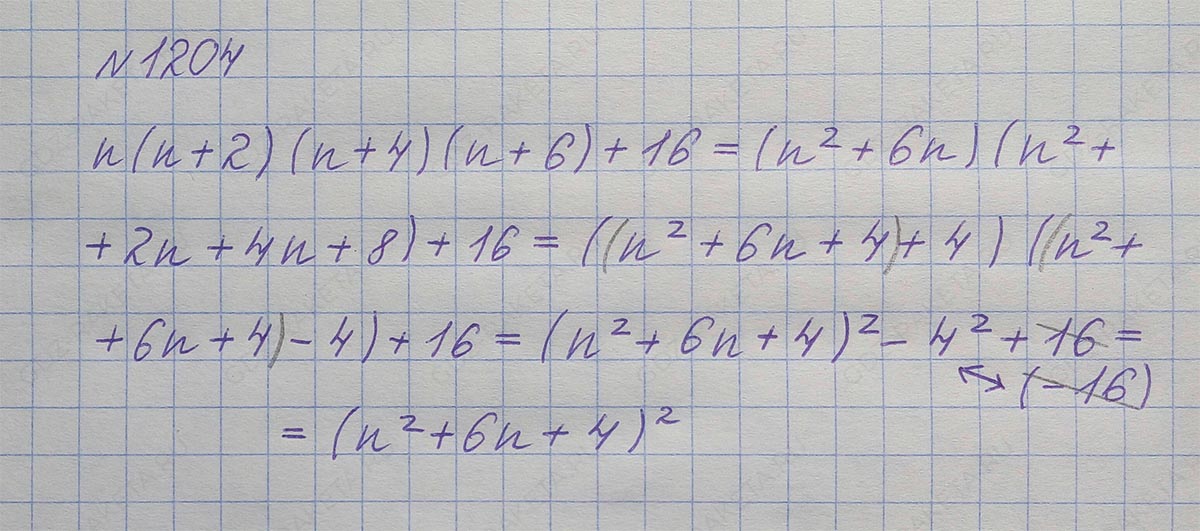 №1204
n(n+2)(n+4)(n+6)+16=(n²+6n)(n²+
+2n+4n+8)+16=((n²+6n+4)+4)((n²+
+6n+4)-4)+16=(n²+6n+4)²-4²+16=
↔(-16)
=(n²+6n+4)²